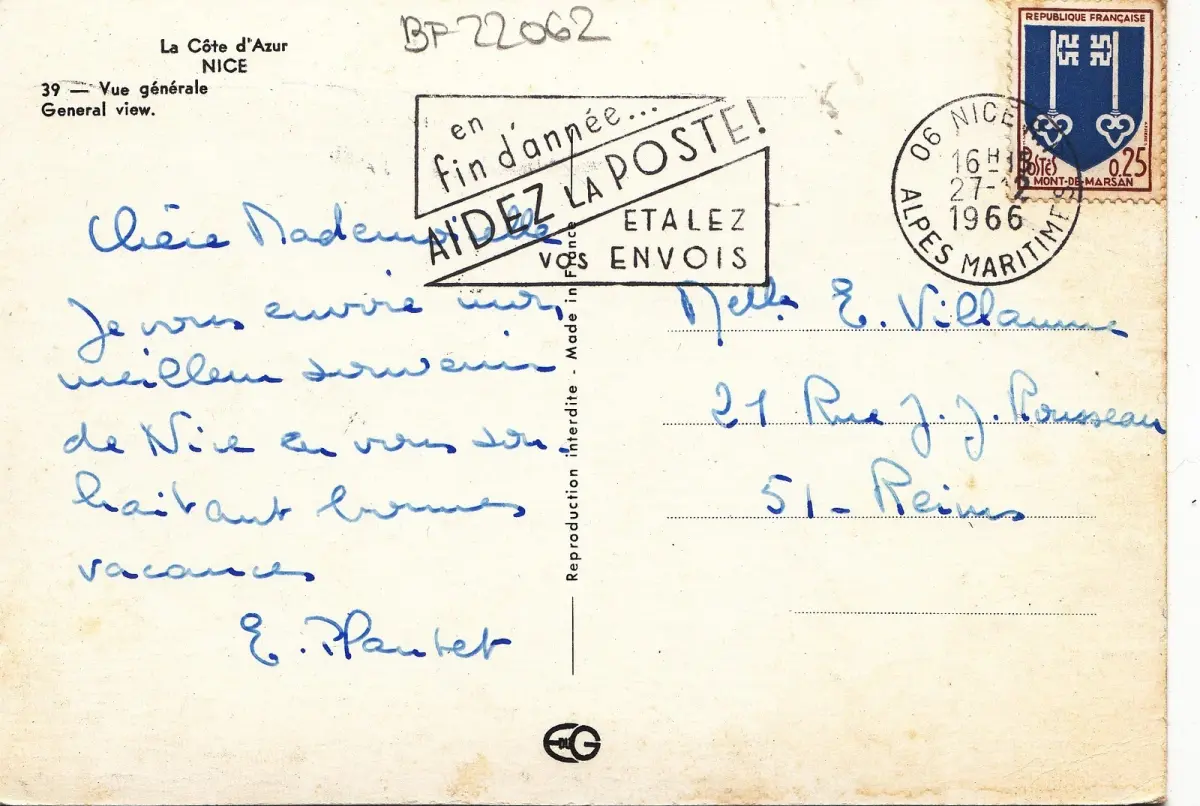 BP-22062
La Côte d'Azur
NICE
39 — Vue générale
General view.
en
fin d'année...
AIDEZ LA POSTE!
ETALEZ
VOS ENVOIS
REPUBLIQUE FRANÇAISE
POSTES 0,25
MONT-DE-MARSAN
06 NICE
16H15
27-12
1966
ALPES MARITIMES
Chère Mademoiselle
Je vous envoie mes
meilleurs souvenirs
de Nice en vous sou-
haitant bonnes
vacances
E. Plantet
Reproduction interdite - Made in France
Melle E. Villaume
21 Rue J. J. Rousseau
51- Reims